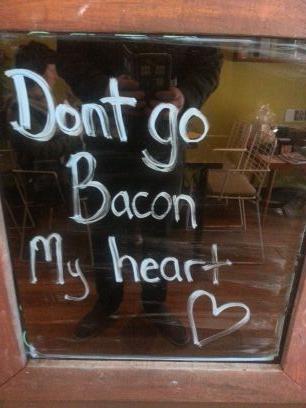 Dont go
Bacon
My heart